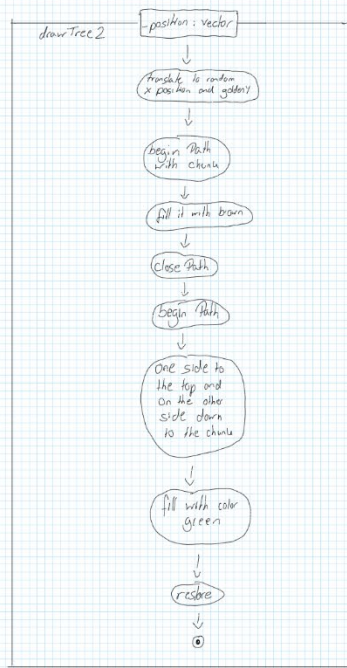 drawTree2
-position: vector
translate to random
x position and golden y
begin Path
with chunk
fill it with brown
close Path
begin Path
One side to
the top and
on the other
side down
to the chunk
fill with color
green
restore